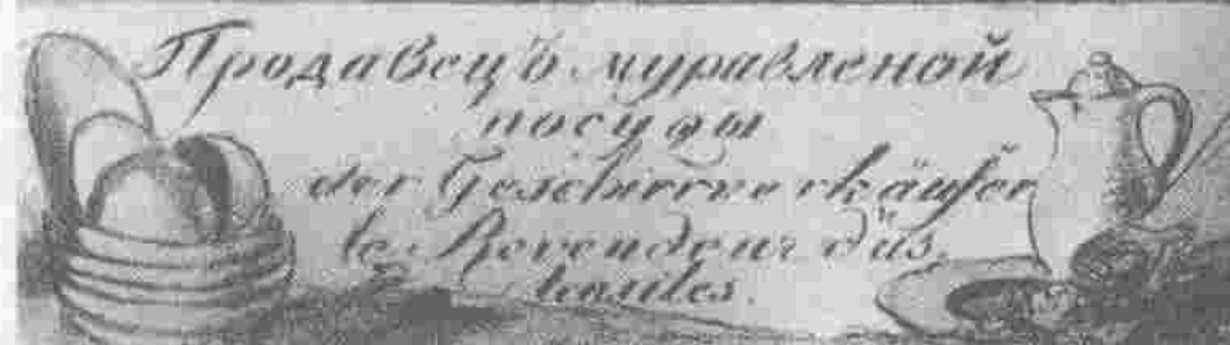 Продавецъ муравленой
посуды
der Geschirrverkäufer
le Revendeur d'us
tensiles.